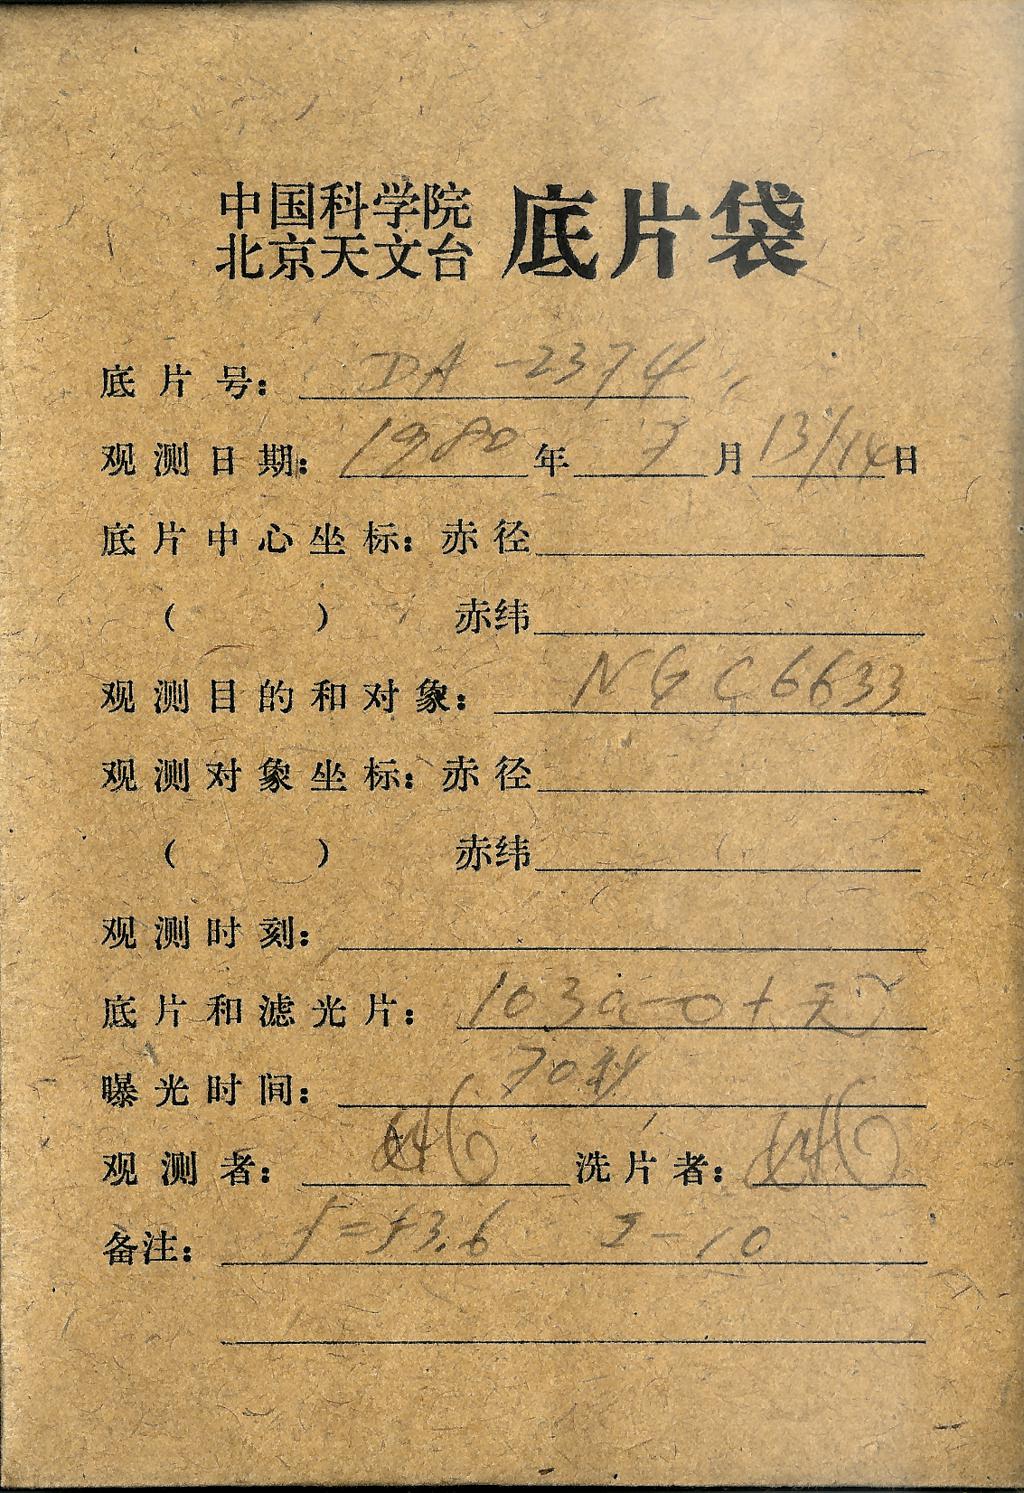 中国科学院
北京天文台 底片袋
底片号: DA-2374
观测日期: 1980年7月13/14日
底片中心坐标: 赤径
( ) 赤纬
观测目的和对象: NGC6633
观测对象坐标: 赤径
( ) 赤纬
观测时刻:
底片和滤光片: 103a-O+天
曝光时间: 70秒
观测者: 洗片者:
备注: -10